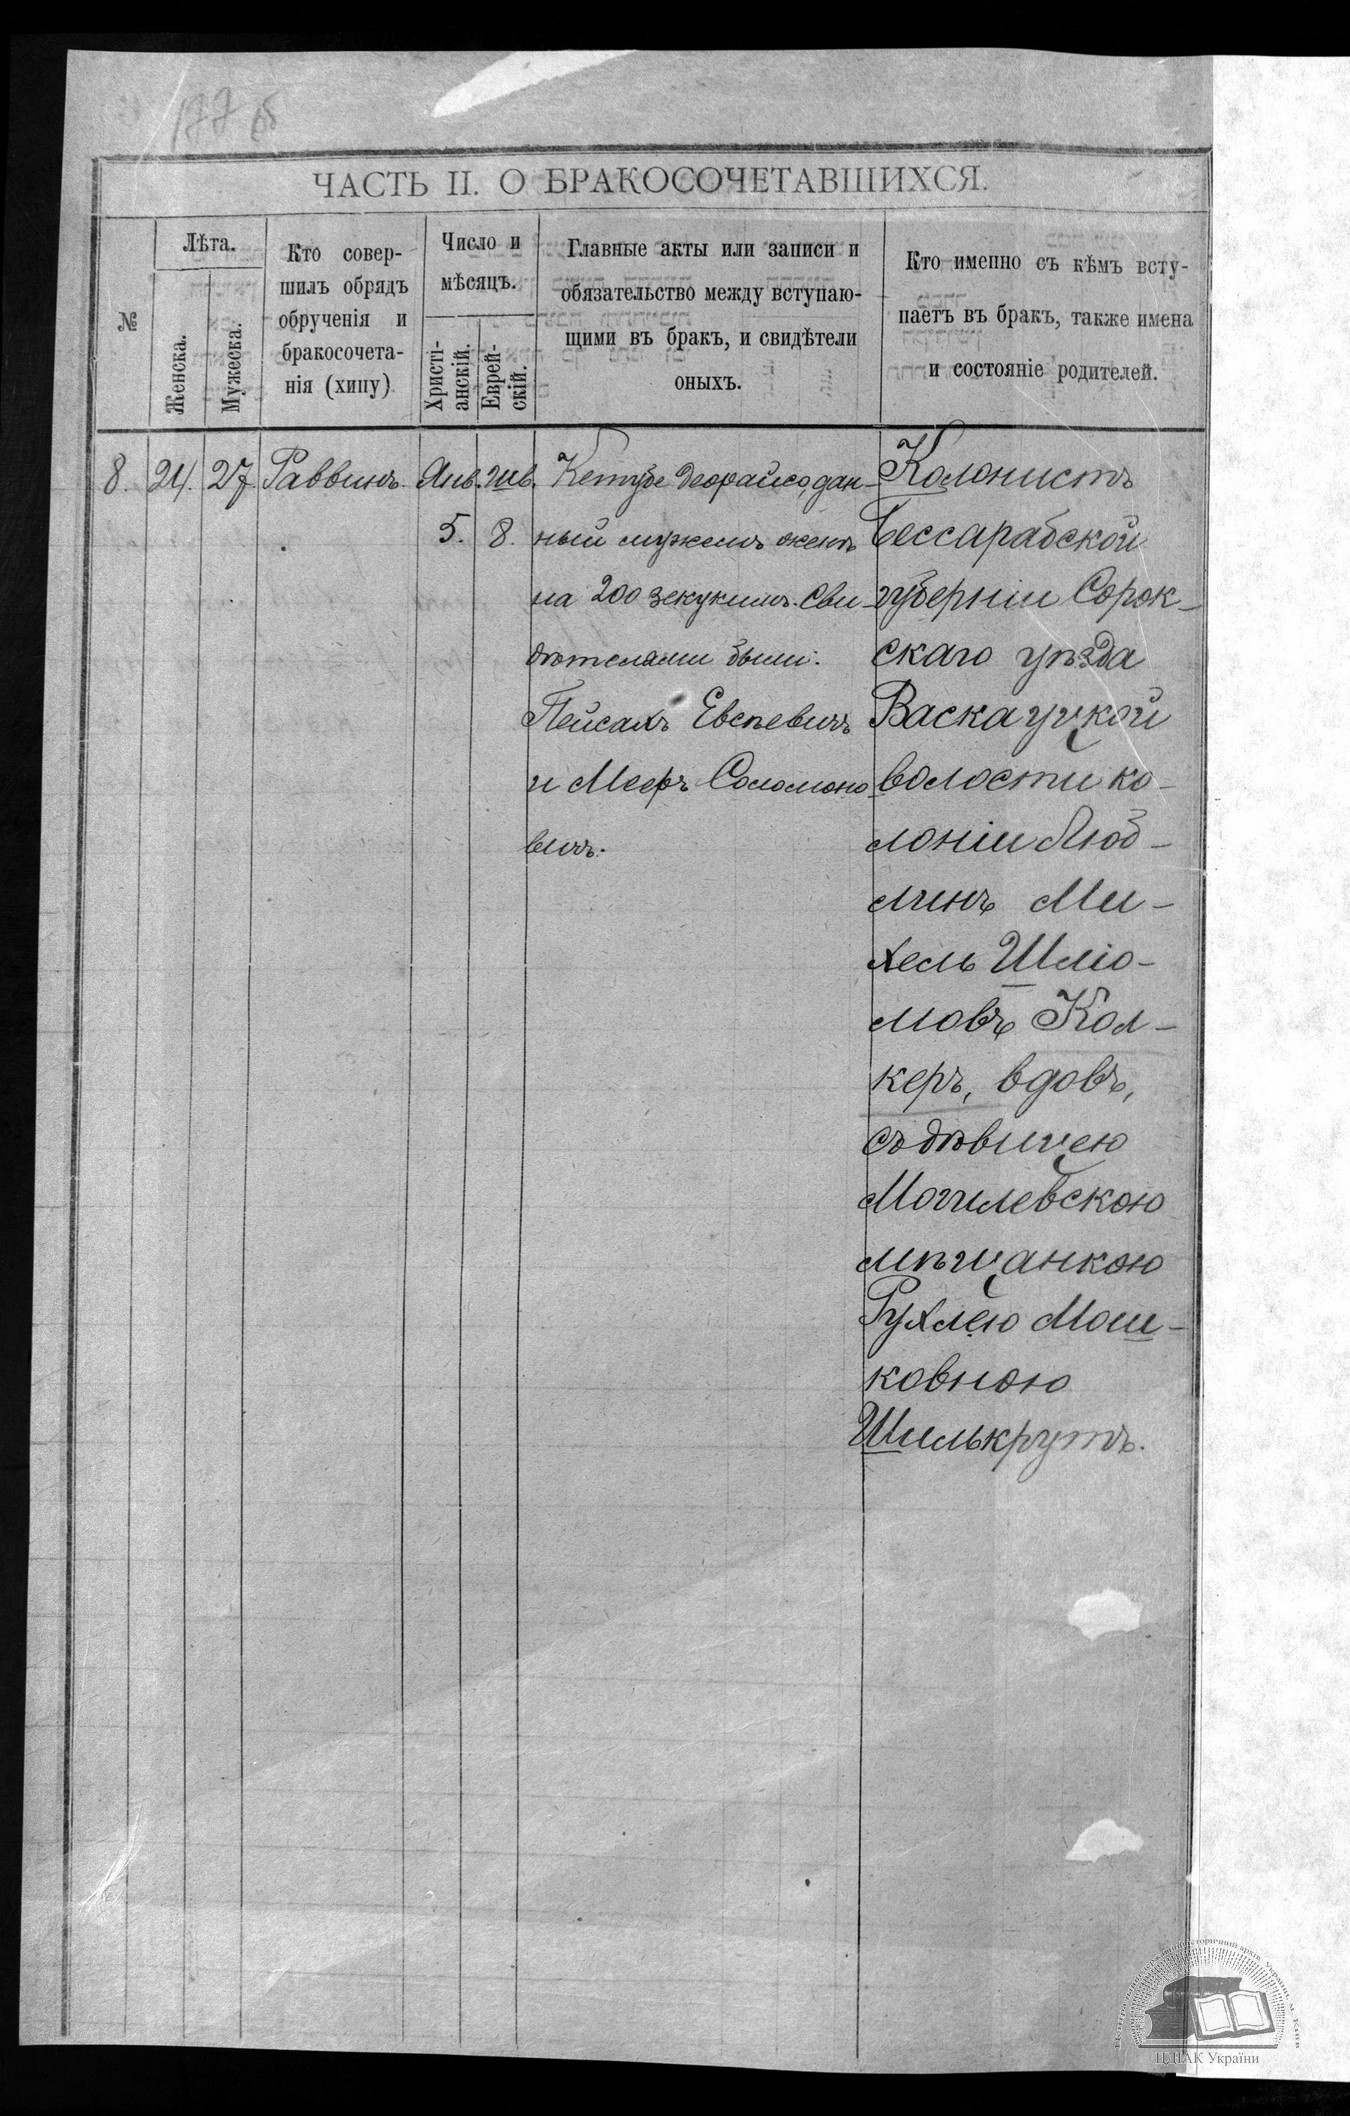 177
ЧАСТЬ II. О БРАКОСОЧЕТАВШИХСЯ.
№
Лѣта.
Женска.
Мужеска.
Кто совер-
шилъ обрядъ
обрученія и
бракосочета-
нія (хипу)
Число и
мѣсяцъ.
Христі-
анскій.
Еврей-
скій.
Главные акты или записи и
обязательство между вступаю-
щими въ бракъ, и свидѣтели
оныхъ.
Кто именно съ кѣмъ всту-
паетъ въ бракъ, также имена
и состояніе родителей.
8.
24.
27.
Раввинъ.
Янв.
5.
Шв.
8.
Кетубе деорайсо, дан-
ный мужемъ женѣ
на 200 зекукимъ. Сви-
дѣтелями были:
Пейсахъ Евсѣевичъ
и Мееръ Соломоно-
вичъ.
Колонистъ
Бессарабской
губерніи Сорок-
скаго уѣзда
Васкауцкой
волости ко-
лоніи Люб-
линъ Ми-
хель Шліо-
мовъ Кол-
керъ, вдовъ,
съ дѣвицею
Могилевскою
мѣщанкою
Рухлею Мош-
ковною
Шилькрутъ.
ЦДІАК України